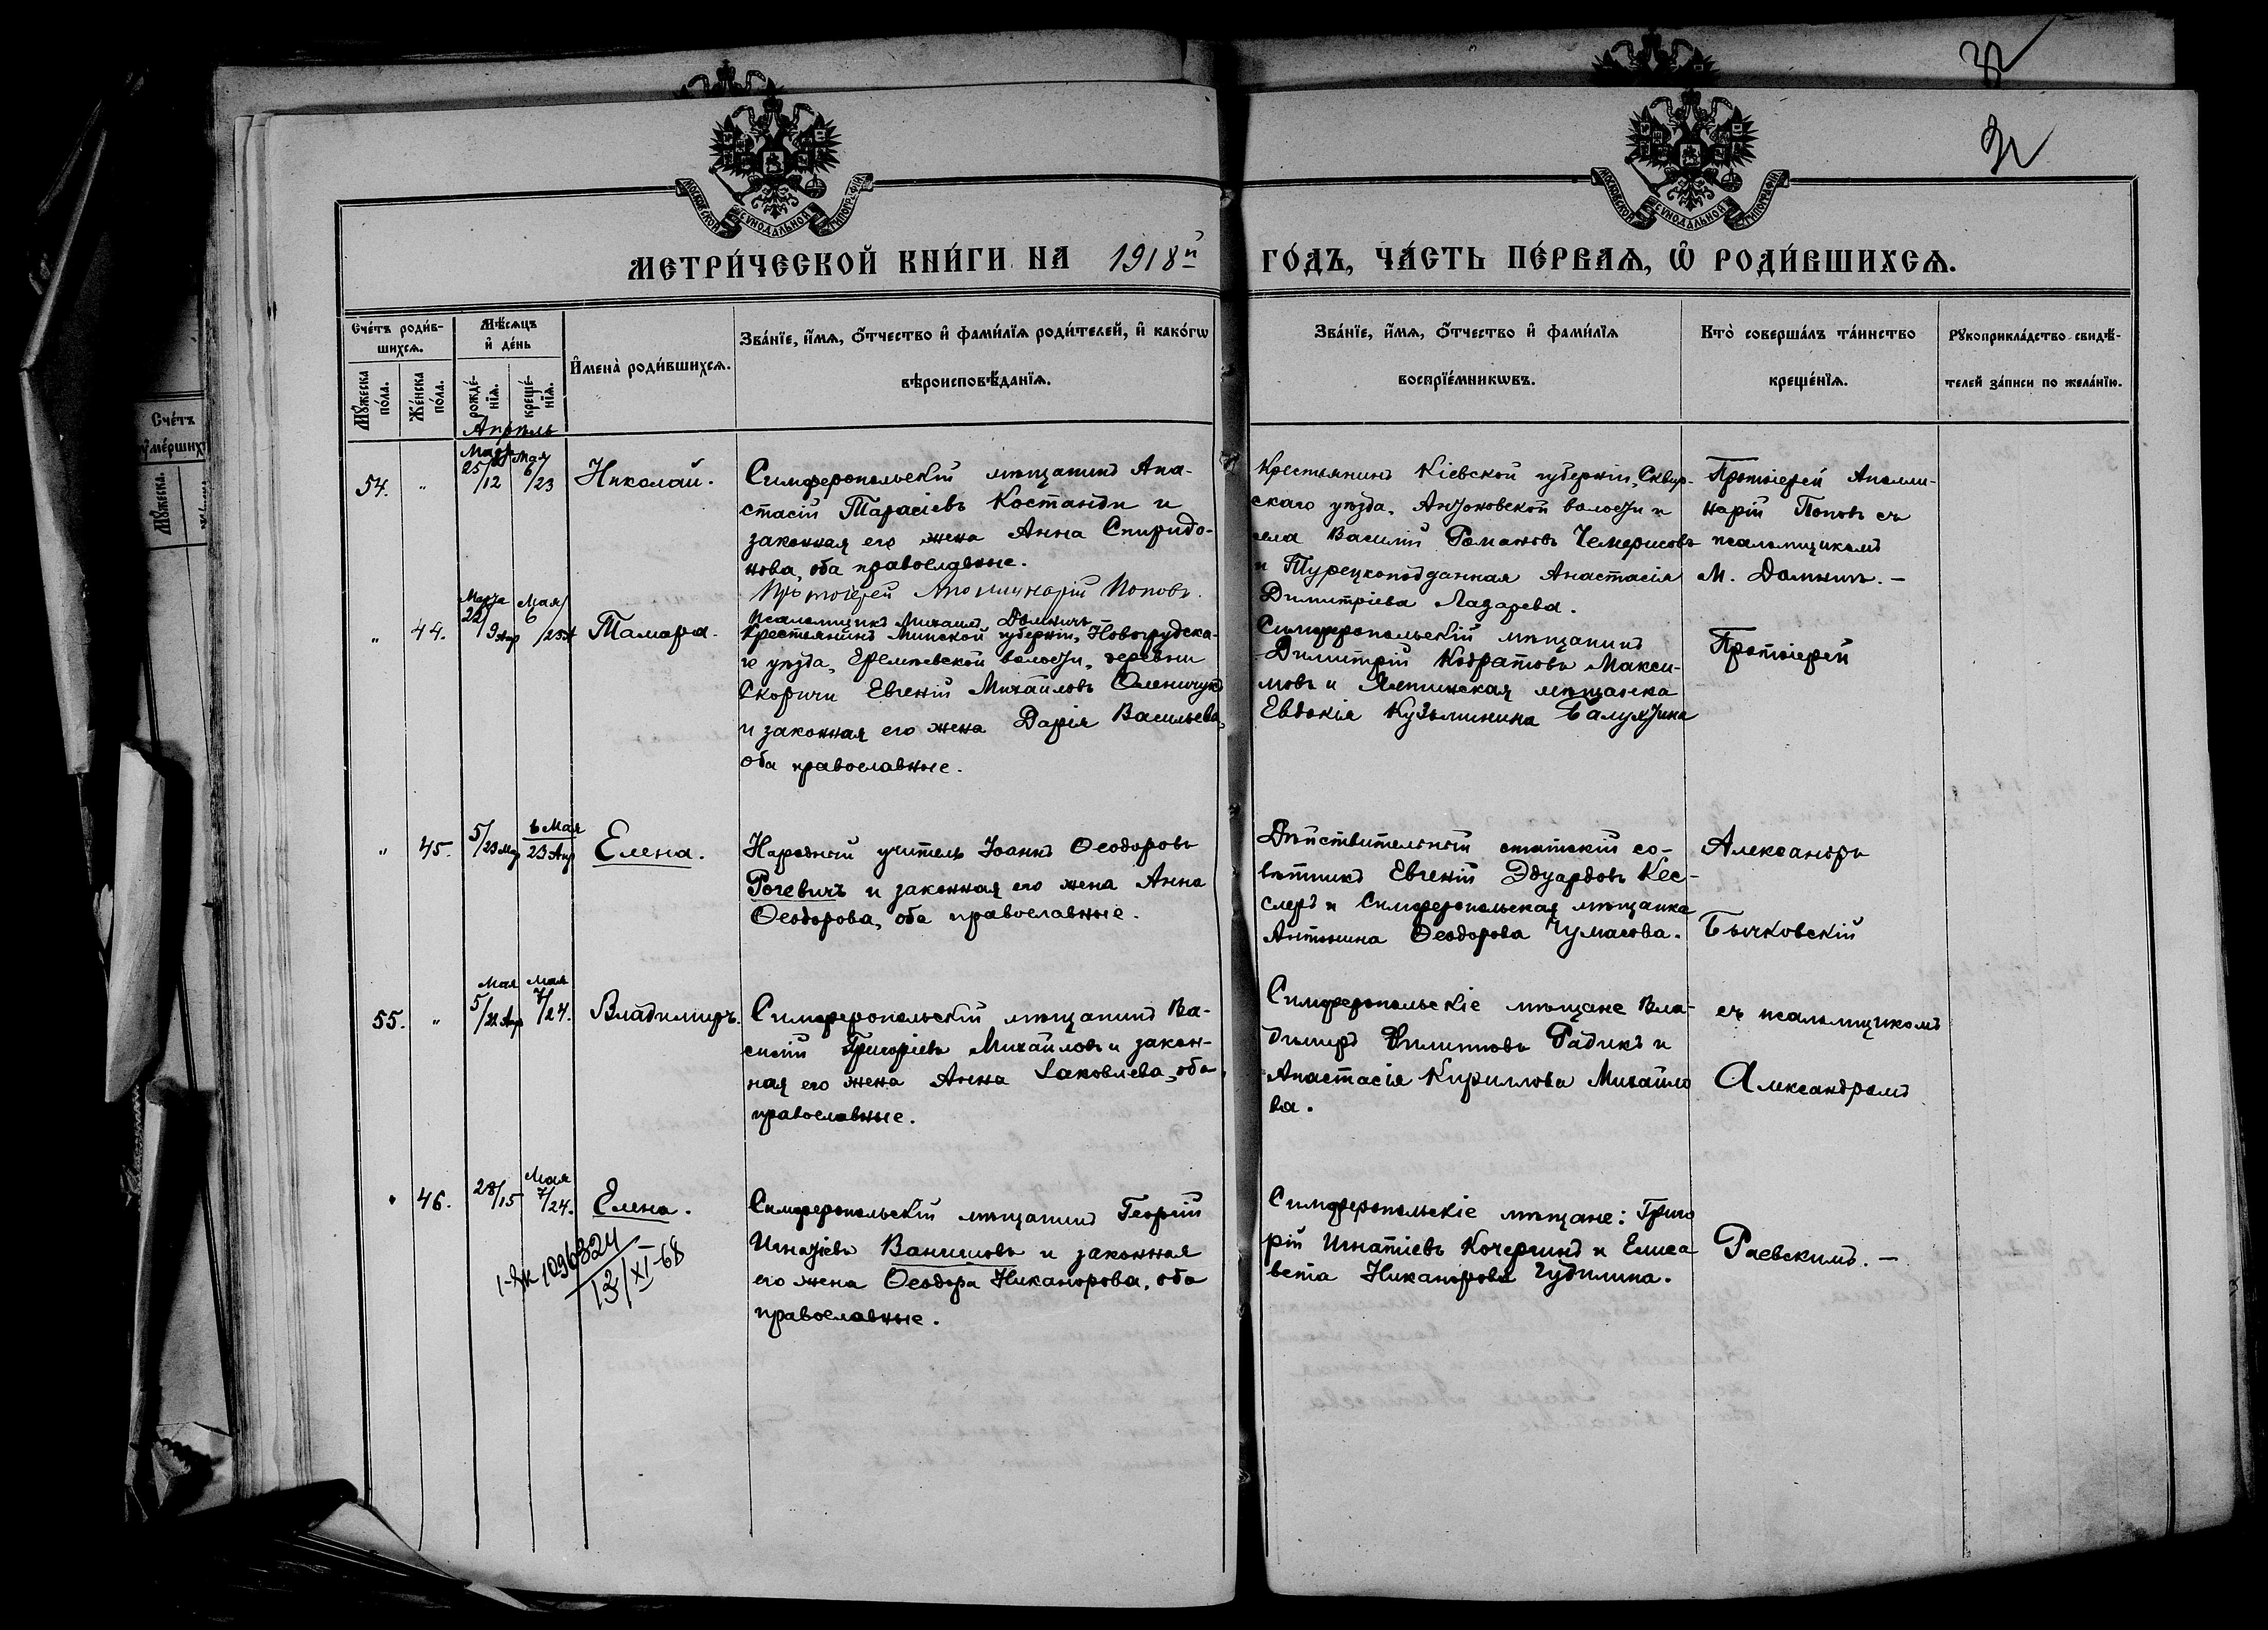 32
32
МОСКОВСКОЙ СѴНОДАЛЬНОЙ ТИПОГРАФІИ
МОСКОВСКОЙ СѴНОДАЛЬНОЙ ТИПОГРАФІИ
МЕТРИ́ЧЕСКОЙ КНИ́ГИ НА 1918й ГО́ДЪ, ЧА́СТЬ ПЕ́РВАѦ, Ѡ҆ РОДИ́ВШИХСѦ.
Сче́тъ роди́в-
шихсѧ.
Мꙋ́жеска по́ла.
Же́нска по́ла.
Мѣ́сѧцъ
и҆ де́нь
рожде́-
нїѧ.
креще́-
нїѧ.
И҆мена̀ роди́вшихсѧ.
Зва́нїе, и҆́мѧ, ѻ҆́тчество и҆ фами́лїѧ роди́телей, и҆ како́гѡ
вѣроисповѣ́данїѧ.
Зва́нїе, и҆́мѧ, ѻ҆́тчество и҆ фами́лїѧ
воспрїе́мникѡвъ.
Кто̀ соверша́лъ та́инство
креще́нїѧ.
Рꙋкоприкла́дство свидѣ́-
телей за́писи по жела́нїю.
Сче́тъ
ᲂу҆ме́ршихъ
Мꙋ́жеска.
Апрѣль
54.
"
25/12
Мая
6/23
Николай.
Симферопольскій мѣщанинъ Ана-
стасій Тарасіевъ Костанди и
законная его жена Анна Спиридо-
нова, оба православные.
Протоіерей Аполлинарій Поповъ.
Псаломщикъ Михаилъ Домнинъ
Крестьянинъ Кіевской губерніи, Сквир-
скаго уѣзда, Антоновской волости и
села Василій Романовъ Чемерисовъ
и Турецкоподданная Анастасія
Димитріева Лазарева.
Протоіерей Аполли-
нарій Поповъ съ
псаломщикомъ
М. Домнинъ. —
"
44.
Марта
22/9 Апр
Мая
6/23 А
Тамара.
Крестьянинъ Минской губерніи, Новогрудска-
го уѣзда, Еремичевской волости, деревни
Скоричи Евгеній Михайловъ Оленичукъ
и законная его жена Дарія Васильева,
оба православные.
Симферопольскій мѣщанинъ
Димитрій Кодратовъ Макси-
мовъ и Ялтинская мѣщанка
Евдокія Кузьминина Балухтина
Протоіерей
"
45.
5/23 Мар
6 Мая
23 Апр
Елена.
Народный учитель Іоаннъ Ѳеодоровъ
Рогевичъ и законная его жена Анна
Ѳеодорова, оба православные.
Дѣйствительный статскій со-
вѣтникъ Евгеній Эдуардовъ Кес-
слеръ и Симферопольская мѣщанка
Антонина Ѳеодорова Чумасова.
Александръ
Бычковскій
55.
"
Мая
5/22 Апр
Мая
7/24.
Владимиръ.
Симферопольскій мѣщанинъ Ва-
силій Григоріевъ Михайловъ и закон-
ная его жена Анна Іаковлева, оба
православные.
Симферопольскіе мѣщане Вла-
димиръ Филипповъ Радикъ и
Анастасія Кириллова Михайло
ва.
съ псаломщикомъ
Александромъ
"
46.
28/15
Мая
7/24.
Елена.
Симферопольскій мѣщанинъ Георгій
Игнатіевъ Ванишовъ и законная
его жена Ѳеодора Никанорова, оба
православные.
Симферопольскіе мѣщане: Григо
рій Игнатіевъ Кочергинъ и Елиса
вета Никанорова Чудилина.
Раевскимъ. —
1-ЯК 1096324
13/XI-68